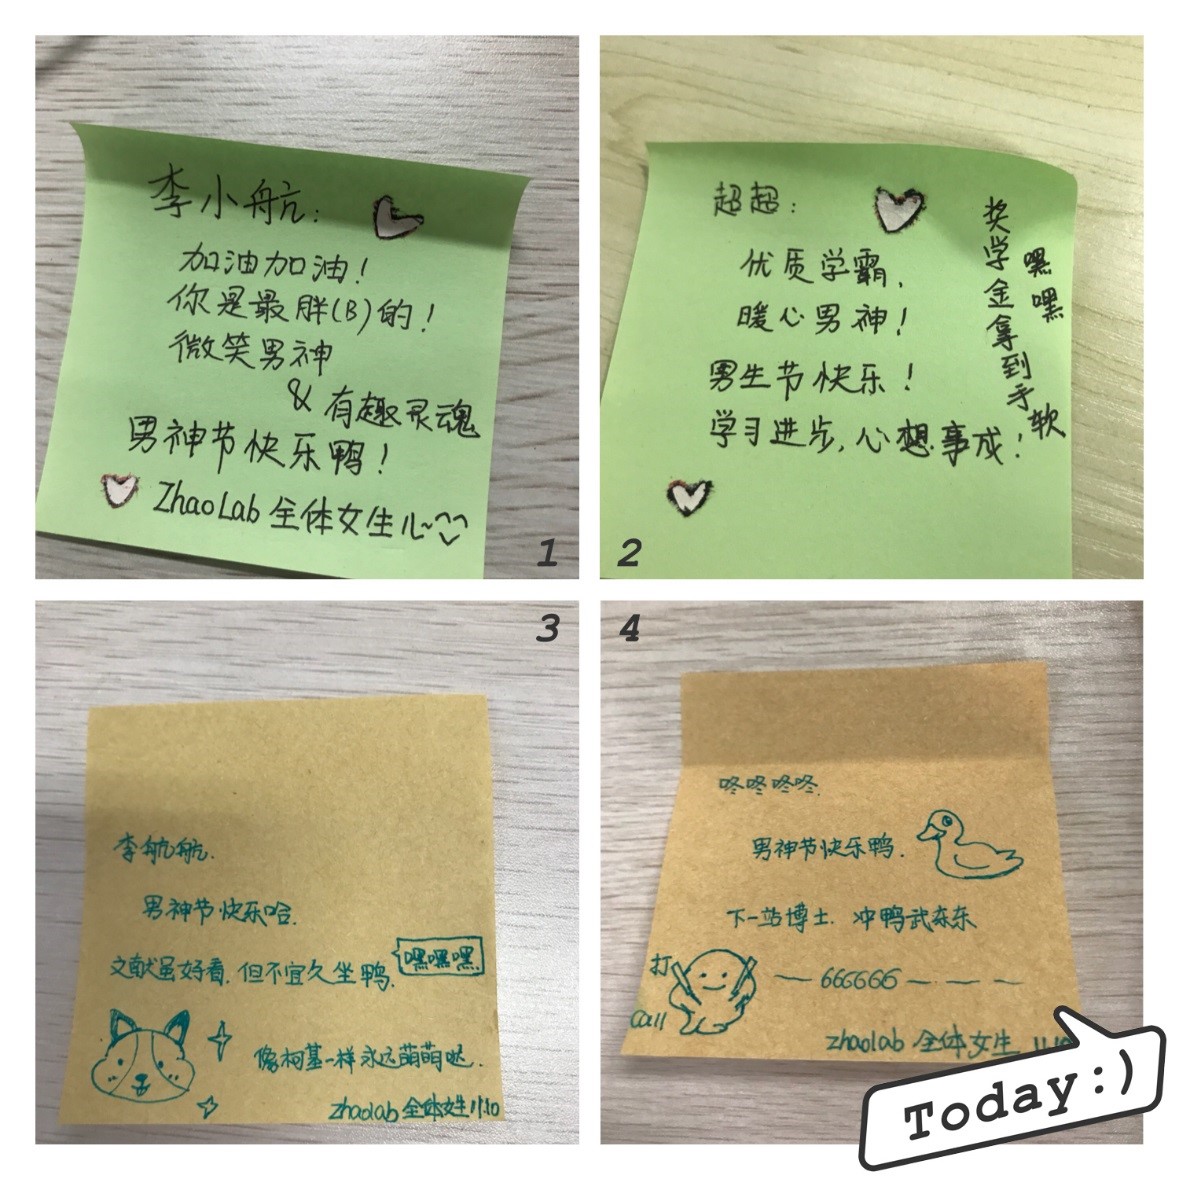 李小航:
加油加油!
你是最胖(B)的!
微笑男神
& 有趣灵魂
男神节快乐鸭!
ZhaoLab 全体女生儿~
1
超超:
优质学霸,
暖心男神!
男生节快乐!
学习进步,心想事成!
奖学金拿到手软
嘿嘿
2
3
李航航.
男神节快乐哈.
文献虽好看.但不宜久坐鸭.
嘿嘿嘿
像柯基一样永远萌萌哒.
zhaolab 全体女生 11.10
4
咚咚咚咚.
男神节快乐鸭.
下一站博士.冲鸭武东东
打
call
— 666666 — — —
zhaolab 全体女生
Today:)